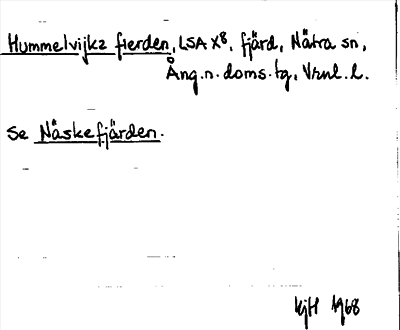 Hummelvijkz fierden, LSA X8, fjärd, Nätra sn,
Ång.n.doms.tg, Vrnl.l.
Se Näskefjärden.
KjH 1968